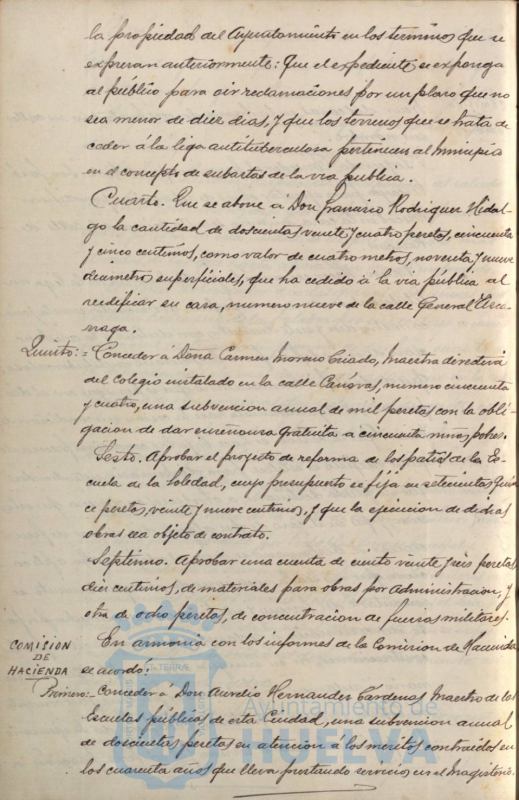 la propiedad del Ayuntamiento en los terminos que se
expresan anteriormente: Que el expediente se exponga
al público para oir reclamaciones por un plazo que no
sea menor de diez dias, y que los terrenos que se trata de
ceder á la liga antituberculosa pertenecen al Municipio
en el concepto de subastas de la via publica.
Cuarto. Que se abone á Don Francisco Rodriguez Hidal-
go la cantidad de doscientas veinte y cuatro pesetas, cincuenta
y cinco centimos, como valor de cuatro metros, noventa y nueve
decimetros superficiales, que ha cedido á la via pública al
reedificar su casa, numero nueve de la calle General
naga.
Quinto:= Conceder á Doña Carmen Moreno Criado, Maestra directora
del Colegio instalado en la calle Cánovas, numero cincuenta
y cuatro, una subvencion anual de mil pesetas con la obli-
gacion de dar enseñanza gratuita a cincuenta niños pobres.
Sexto. Aprobar el proyecto de reforma de los patios de la Es-
cuela de la Soledad, cuyo presupuesto se fija en setecientas quin
ce pesetas, veinte y nueve centimos, y que la ejecucion de dichas
obras sea objeto de contrato.
Septimo. Aprobar una cuenta de ciento veinte y seis pesetas
diez centimos, de materiales para obras por Administracion, y
otra de ocho pesetas, de concentracion de fuerzas militares.
COMISION
DE
HACIENDA
En armonia con los informes de la Comision de Hacienda
se acordó:
Primero:= Conceder á Don Aurelio Hernandez Cárdenas, Maestro de las
Escuelas públicas de esta Ciudad, una subvencion anual
de doscientas pesetas en atencion á los meritos contraidos en
los cuarenta años que lleva prestando servicios en el Magisterio.
Ayuntamiento de
HUELVA